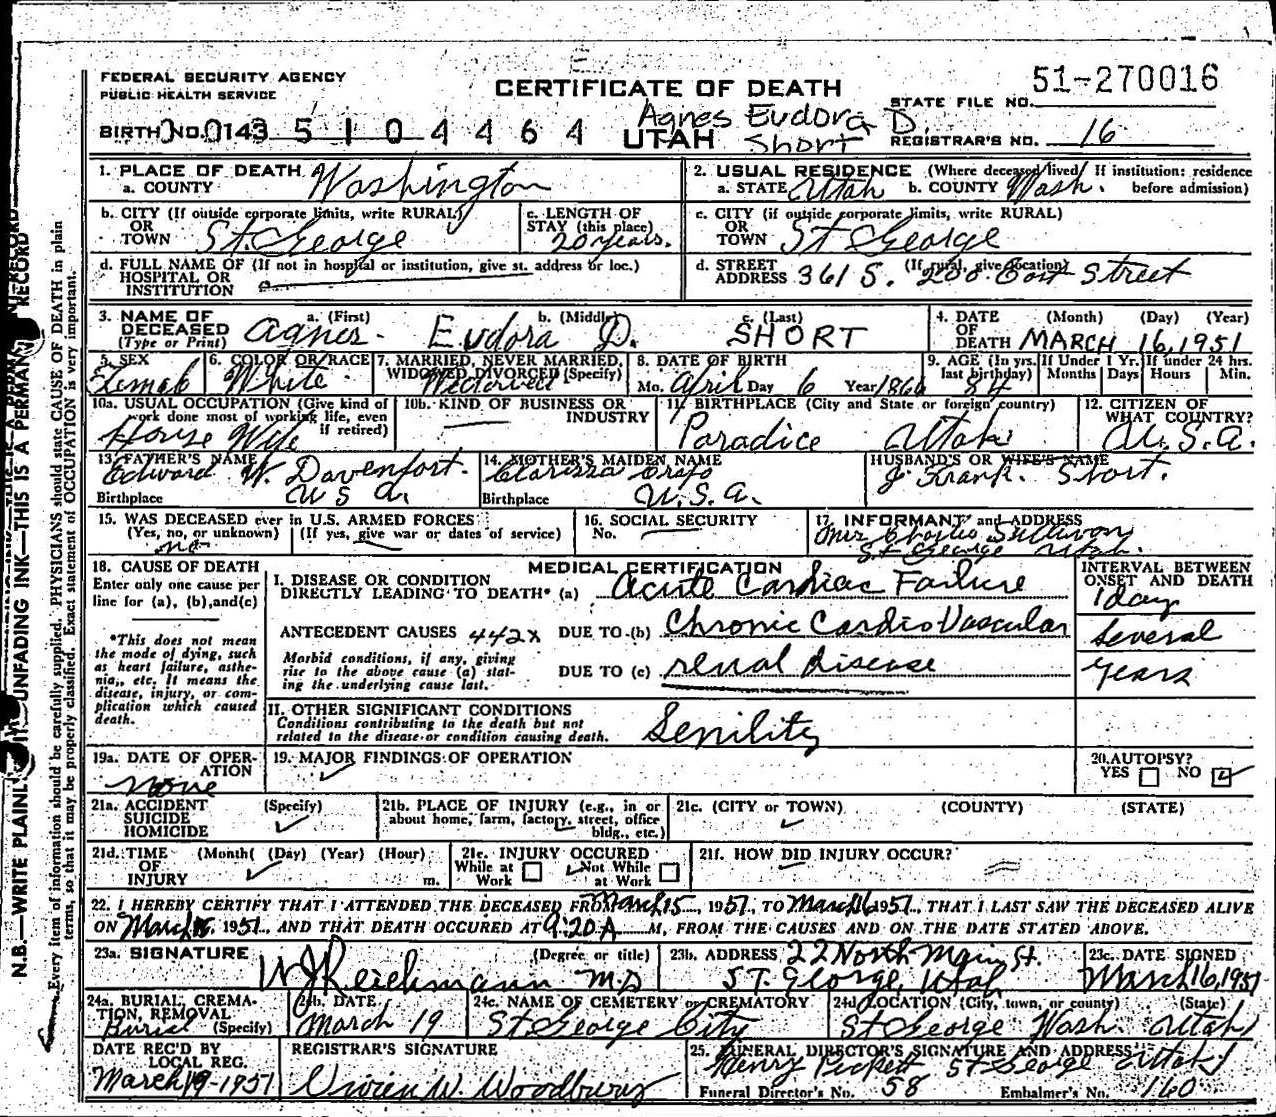 FEDERAL SECURITY AGENCY
PUBLIC HEALTH SERVICE
CERTIFICATE OF DEATH
51-270016
STATE FILE NO.
BIRTH NO. 0143 5 1 0 4 4 6 4
UTAH
Agnes Eudora D.
Short
REGISTRAR'S NO. 16
1. PLACE OF DEATH
a. COUNTY Washington
2. USUAL RESIDENCE (Where deceased lived/ If institution: residence before admission)
a. STATE Utah b. COUNTY Wash.
b. CITY (If outside corporate limits, write RURAL)
OR TOWN St. George
c. LENGTH OF STAY (this place)
20 years.
c. CITY (if outside corporate limits, write RURAL)
OR TOWN St George
d. FULL NAME OF (If not in hospital or institution, give st. address or loc.)
HOSPITAL OR INSTITUTION
d. STREET ADDRESS (If rural, give location)
361 S. 200 East Street
3. NAME OF DECEASED (Type or Print)
a. (First) b. (Middle) c. (Last)
Agnes Eudora D. SHORT
4. DATE OF DEATH (Month) (Day) (Year)
MARCH 16, 1951
5. SEX
Female
6. COLOR OR RACE
White
7. MARRIED, NEVER MARRIED, WIDOWED, DIVORCED (Specify)
Widowed
8. DATE OF BIRTH
Mo. April Day 6 Year 1866
9. AGE (In yrs. last birthday)
84
If Under 1 Yr. Months Days
If under 24 hrs. Hours Min.
10a. USUAL OCCUPATION (Give kind of work done most of working life, even if retired)
House Wife
10b. KIND OF BUSINESS OR INDUSTRY
11. BIRTHPLACE (City and State or foreign country)
Paradice Utah
12. CITIZEN OF WHAT COUNTRY?
U.S.A.
13. FATHER'S NAME
Edward W. Davenport.
Birthplace U S A.
14. MOTHER'S MAIDEN NAME
Clarissa
Birthplace U.S.A.
HUSBAND'S OR WIFE'S NAME
J Frank. Short.
15. WAS DECEASED ever in U.S. ARMED FORCES
(Yes, no, or unknown) (If yes, give war or dates of service)
no
16. SOCIAL SECURITY
No.
17. INFORMANT and ADDRESS
Mrs Sullivan
St George Utah.
18. CAUSE OF DEATH
Enter only one cause per line for (a), (b), and (c)
*This does not mean the mode of dying, such as heart failure, asthenia, etc. It means the disease, injury, or complication which caused death.
MEDICAL CERTIFICATION
INTERVAL BETWEEN ONSET AND DEATH
I. DISEASE OR CONDITION DIRECTLY LEADING TO DEATH* (a) Acute Cardiac Failure
1 day
ANTECEDENT CAUSES 442X DUE TO (b) Chronic Cardio Vascular
Several
Morbid conditions, if any, giving rise to the above cause (a) stating the underlying cause last.
DUE TO (c) renal disease
Years
II. OTHER SIGNIFICANT CONDITIONS
Conditions contributing to the death but not related to the disease or condition causing death.
Senility
19a. DATE OF OPERATION
None
19. MAJOR FINDINGS OF OPERATION
20. AUTOPSY?
YES NO
21a. ACCIDENT SUICIDE HOMICIDE (Specify)
21b. PLACE OF INJURY (e.g., in or about home, farm, factory, street, office bldg., etc.)
21c. (CITY or TOWN) (COUNTY) (STATE)
21d. TIME OF INJURY (Month) (Day) (Year) (Hour) m.
21e. INJURY OCCURED
While at Work Not While at Work
21f. HOW DID INJURY OCCUR?
22. I HEREBY CERTIFY THAT I ATTENDED THE DECEASED FROM March 15, 1951, TO March 16 1951, THAT I LAST SAW THE DECEASED ALIVE
ON March 16, 1951, AND THAT DEATH OCCURED AT 9:20 A M, FROM THE CAUSES AND ON THE DATE STATED ABOVE.
23a. SIGNATURE (Degree or title)
W J Reichmann MD
23b. ADDRESS 22 North Main St.
ST. George, Utah
23c. DATE SIGNED
March 16, 1951
24a. BURIAL, CREMATION, REMOVAL (Specify)
Burial
24b. DATE
March 19
24c. NAME OF CEMETERY or CREMATORY
St George City
24d LOCATION (City, town, or county) (State)
St George Wash. Utah
DATE REC'D BY LOCAL REG.
March 19-1951
REGISTRAR'S SIGNATURE
Vivien W. Woodbury
25. FUNERAL DIRECTOR'S SIGNATURE AND ADDRESS
Henry Pickett St George Utah
Funeral Director's No. 58 Embalmer's No. 160
N.B.—WRITE PLAINLY UNFADING INK—THIS IS A PERMANENT RECORD
Every item of information should be carefully supplied. PHYSICIANS should state CAUSE OF DEATH in plain
terms, so that it may be properly classified. Exact statement of OCCUPATION is very important.